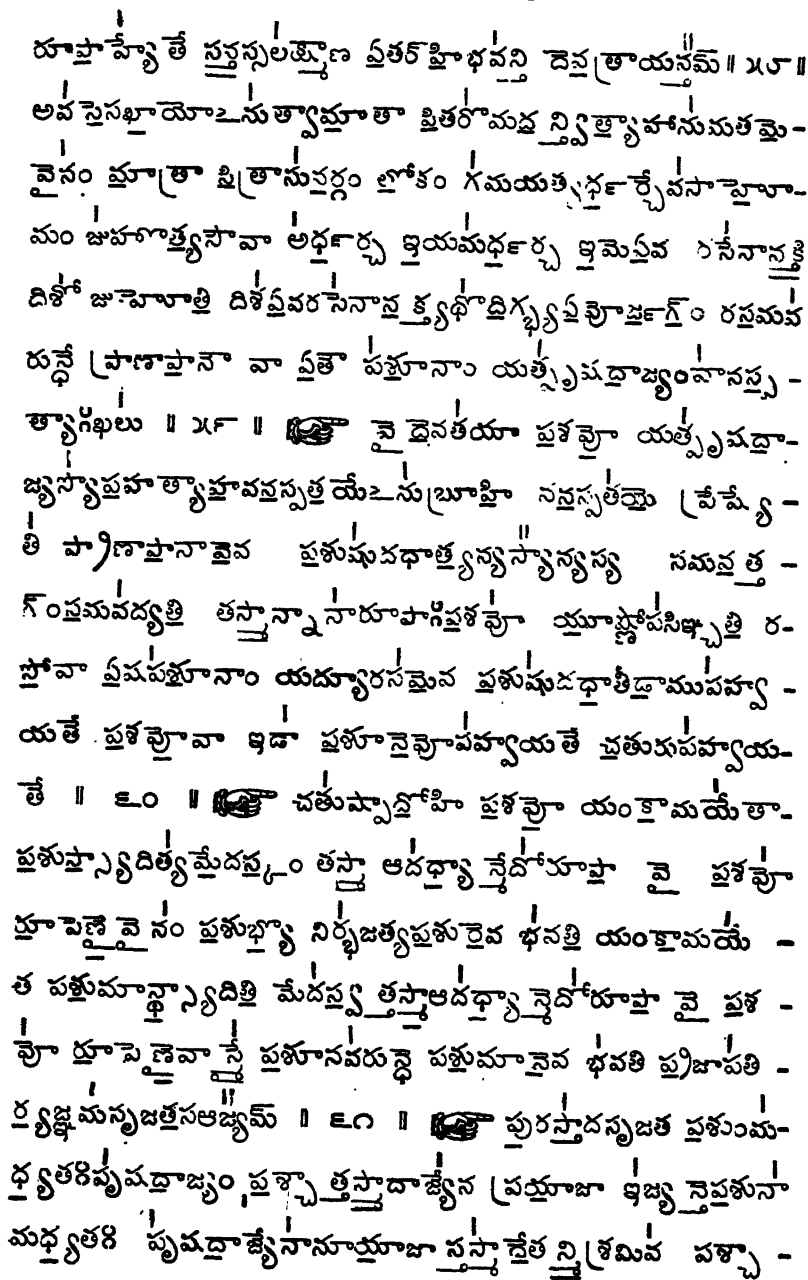 రూపా॒హ్యే॑తే స॒న్త॒స్సల॑క్ష్మాణ ఏ॒తర్‌హి॒భవ॑న్తి దేవ॒త్రాయన్త॑మ్॥ ౫౮॥
అవ॑సే॒సఖా॒యోఽను॑త్వామా॒తా పి॒తరో॑మద॒న్త్విత్యా॒హాను॑మతమే॒-
వైనం॑ మా॒త్రా పి॒త్రాసు॑వ॒ర్గం లో॒కం గ॑మయత్య॒ర్ధర్చే॑వసాహో॒
మం జు॑హోత్య॒సౌవా అ॑ర్ధ॒ర్చ ఇ॒యమ॑ర్ధ॒ర్చ ఇ॒మేఏ॒వ రసే॑నాన॒క్తి॒
దిశో॑ జుహోతి॒ దిశ॑ఏ॒వరసే॑నాన॒క్త్యథో॑ది॒గ్భ్యఏ॒వోర్జ॒గ్ం రస॒మవ॑
రున్ధే ప్రాణాపా॒నౌ వా ఏ॒తౌ ప॑శూ॒నాం యత్పృ॑షదా॒జ్యంవా॑నస్ప॒-
త్యాఃఖలు॑ ॥ ౫౯ ॥ వై దే॒వత॑యా ప॒శవో॒ యత్పృ॑షదా॒-
జ్యస్యో॑ప॒హత్యా॒హవన॒స్పత॒యేఽను॑బ్రూహి॒ వన॒స్పత॑యే॒ ప్రేష్యే॒-
తి॑ ప్రాణాపా॒నావే॒వ ప॒శుషు॑దధాత్య॒న్యస్యా॒న్యస్య సమవ॒త్త॒-
గ్ంస॒మవ॑ద్యతి॒ తస్మా॒న్నానా॑రూపాఃప॒శవో॑ యూ॒ష్ణోప॑సిఞ్చతి॒ ర-
సో॒వా ఏ॒షప॑శూ॒నాం యద్యూరస॑మే॒వ ప॒శుషు॑దధా॒తీడా॒ముప॑హ్వ-
యతే॑ ప॒శవో॒వా ఇడా॑ ప॒శూనే॒వోప॑హ్వాయతే చ॒తురుప॑హ్వాయ-
తే॑ ॥ ౬౦ ॥ చతు॑ష్పాదో॒హి ప॒శవో॒ యంకా॒మయే॑తా-
ప॒శుస్స్యా॒దిత్య॑మే॒దస్కం॒ తస్మా॒ ఆద॑ధ్యా॒న్మేదో॑రూపా॒ వై ప॒శవో॑
రూ॒పేణై॒వైనం॑ ప॒శుభ్యో॒ నిర్భ॑జత్యప॒శురే॒వ భ॑వతి॒ యంకా॒మయే॑-
త పశు॒మాన్థ్స్యా॒దితి॒ మేద॑స్వ॒త్తస్మా॒ఆద॑ధ్యా॒న్మేదో॑రూపా॒ వై ప॒శ-
వో॑ రూ॒పేణై॒వాస్మే॑ ప॒శూనవ॑రున్ధే పశు॒మానే॒వ భ॑వతి ప్ర॒జాప॑తి-
ర్య॒జ్ఞమ॑సృజత॒సఆజ్య॑మ్ ॥ ౬౧ ॥ పు॒రస్తా॑దసృజత ప॒శుంమ॑-
ధ్య॒తఃపృ॑షదా॒జ్యం॒ప॒శ్చాత్తస్మా॒దాజ్యే॑న ప్రయా॒జా ఇ॑జ్యన్తేప॒శునా॑
మధ్య॒తః పృ॑షదా॒జ్యేనా॑నూయా॒జా స్తస్మా॑దే॒తన్మి॒శ్రమి॑వ పశ్చా॒-